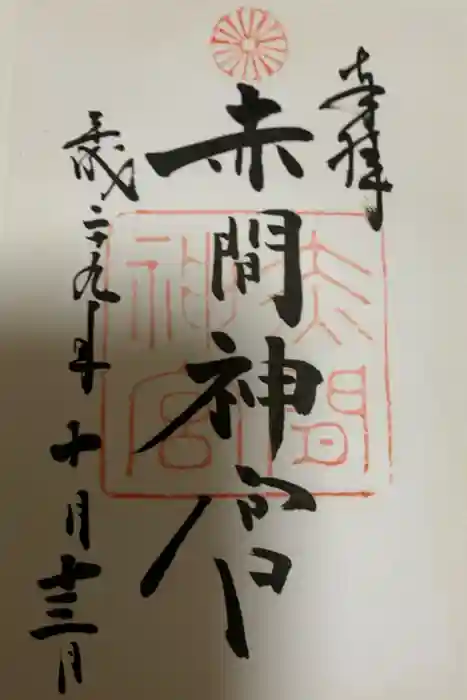 奉拝
赤間神宮
平成二十九年十月十三日
赤間
神宮